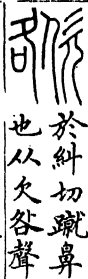 㰶
於糾切蹴鼻
也从欠咎聲